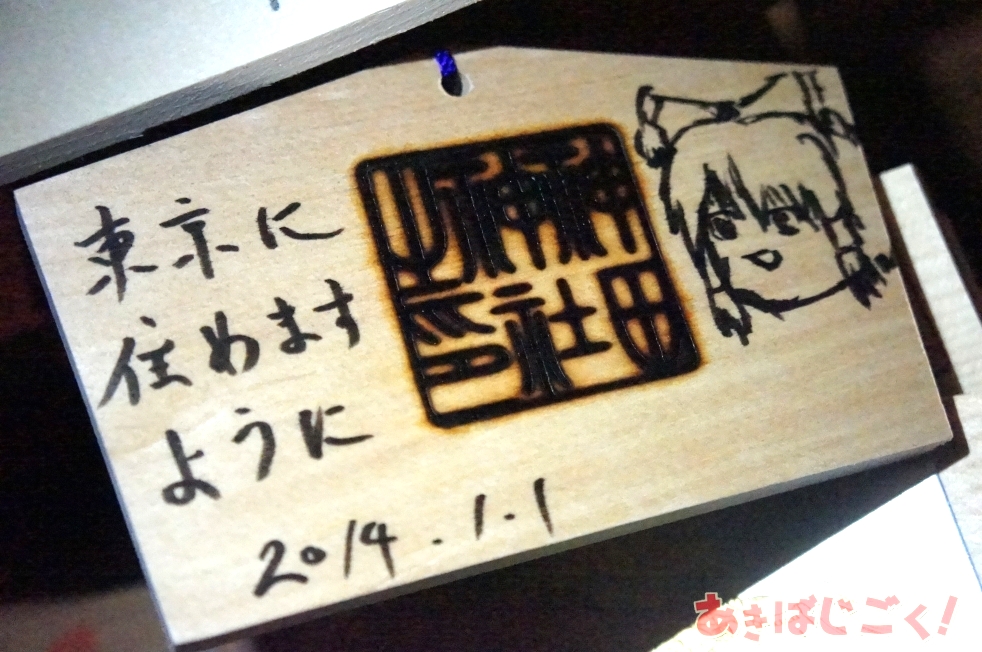 東京に
住めます
ように
2014.1.1
神田神社
あきばじごく!